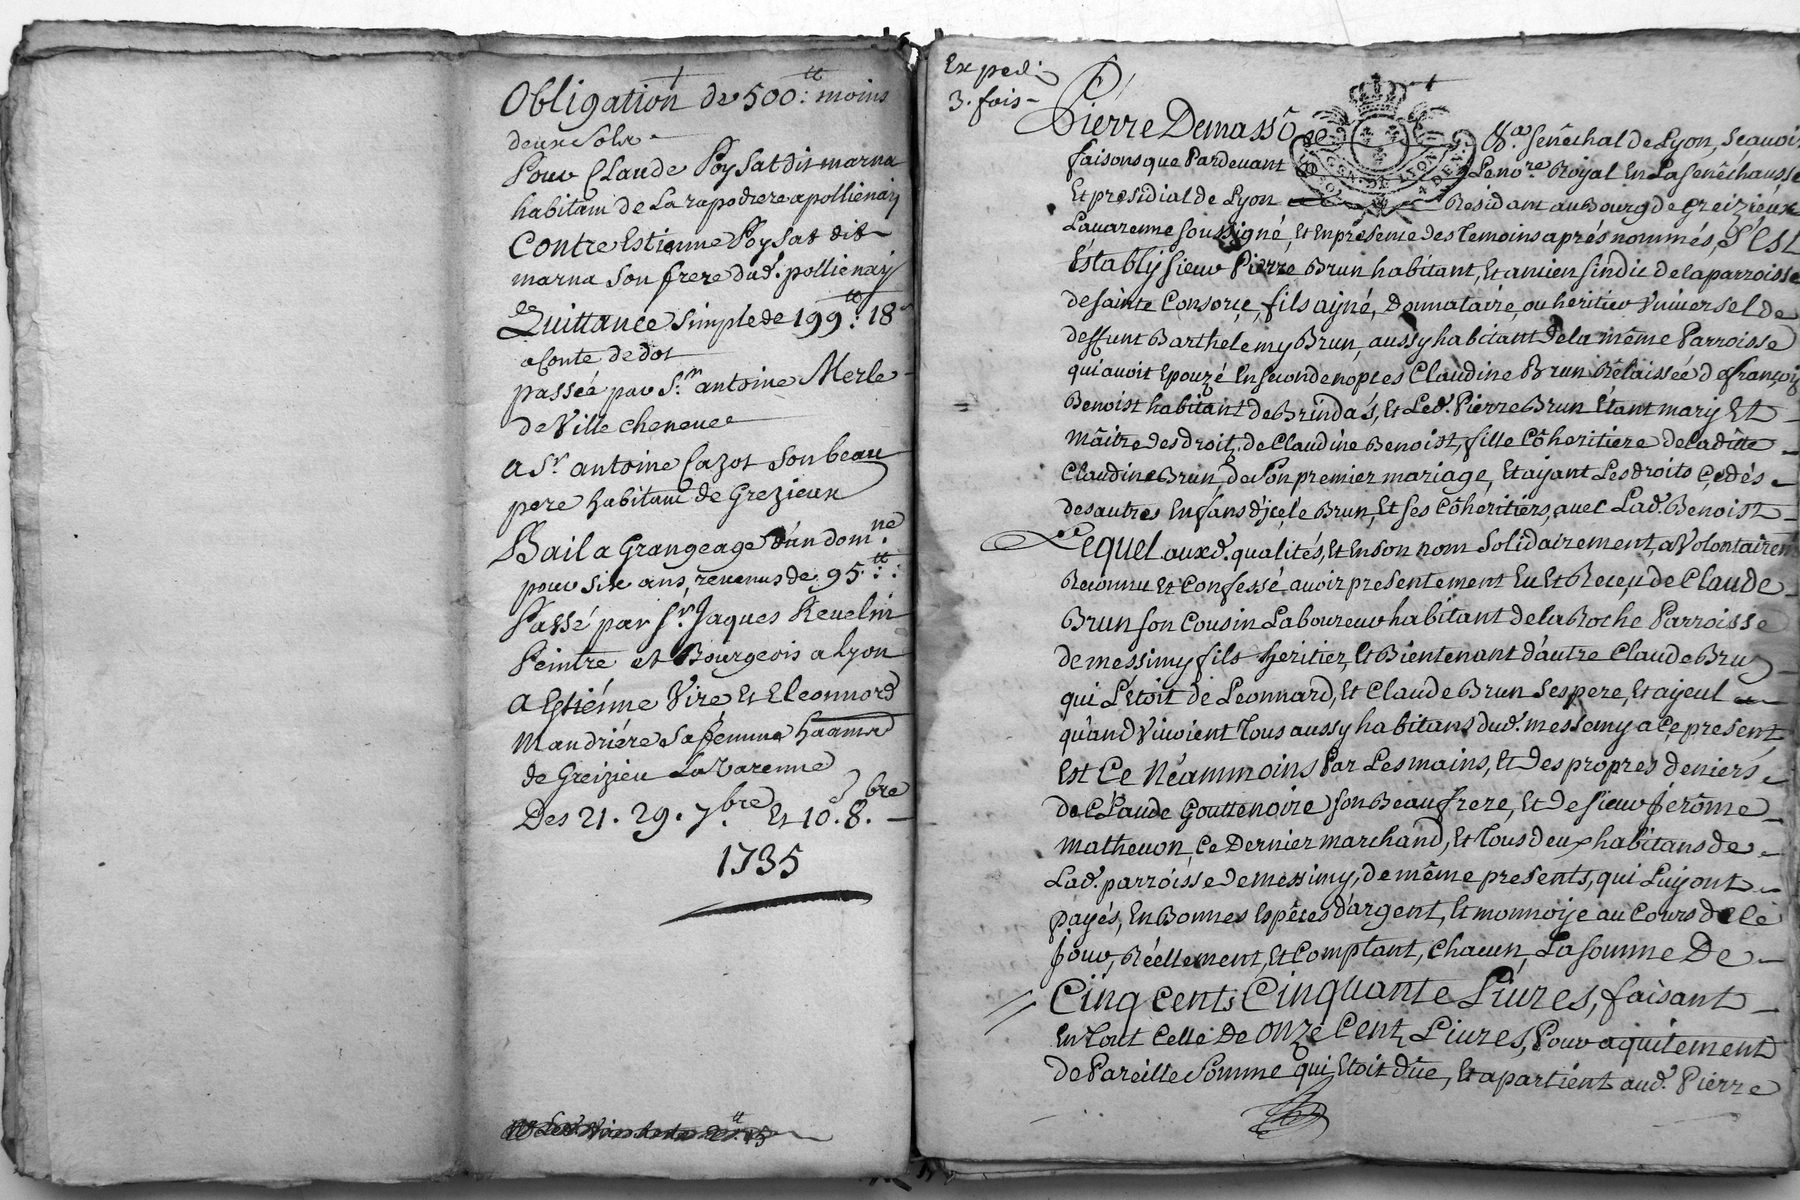 Obligation de 500:tt moins
deux sols
Pour Claude Poysat dit marna
habitant de La rapodiere a pollienay
Contre Estienne Poysat dit
marna son frere dud. pollienay
Quittance simple de 199:tt 18s
a Conte de dot
passée par Sr. antoine Merle
de Ville cheneve
a Sr antoine Cazot son beau
pere habitant de Grezieux
Bail a Grangeage d'un domne.
pour six ans, revenus de 95:tt:
Passé par Sr. Jaques Revelin
Peintre et Bourgeois a Lyon
A Estiénne Viré Et Eleonnord
Mandriére sa femme
de Greizieu La Varenne
Des 21. 29. 7bre. Et 10. 8bre.
1735
Exped:
3. fois
Pierre Demasso
GEN. DE LYON 4 DEN.
Senéchal de Lyon, Sçavoir
faisons que Pardevant Le nore. Royal En La Senêchaussée
Et présidial de Lyon Residant au Bourg de Greizieux
Lavarenne soussigné, Et En présence des temoins aprés nommés, S'Est
Establÿ sieur Pierre Brun habitant, Et antien sindic de la parroisse
de sainte Consorçe, fils ayné, Donnataire, ou heritier Vniversel de
deffunt Barthelemy Brun, aussy habitant de la même Parroisse
qui avoit Epouzé En seconde nopces Claudine Brun Rélaissée de françois
Benoist habitant de Brindas, Et Led. Pierre Brun Etant mary Et
Mâitre des droit de Claudine Benoist, fille Côheritiere de Ladîtte
Claudine Brun, de son premier mariage, Et ayant Les droits Cedés
des autres Enfans d'jcele Brun, Et ses Côheritiers, avec Lad. Benoist
Lequel auxd. qualités, Et En son nom solidairement, a Volontairemt
Reconnu Et Confessé avoir presentement Eu Et Receu de Claude
Brun son Cousin Laboureur habitant de la Roche Parroisse
de messimy fils heritier, Et Bientenant d'autre Claude Brun
qui L'étoit de Leonnard, Et Claude Brun ses pere, Et ayeul
quand Vivoient tous aussy habitans dud. messemy a Ce present,
Est Ce Néammoins Par Les mains, Et des propres deniers
de Claude Gouttenoire son Beaufrere, Et de sieur Jerôme
mathevon, Ce Dernier marchand, Et tous deux habitans de
Lad. parroisse de messimy, de même presents, qui Luy ont
payés, En Bonnes Espêces d'argent, Et monnoye au Cours de Ce
Jour, Réellement, Et Comptant, Chacun, La somme De
Cinq Cents Cinquante Livres, faisant
En tout Celle De onze Cent Livres, Pour aquitement
de Pareille Somme qui Etoit dûe, Et apartient aud. Pierre